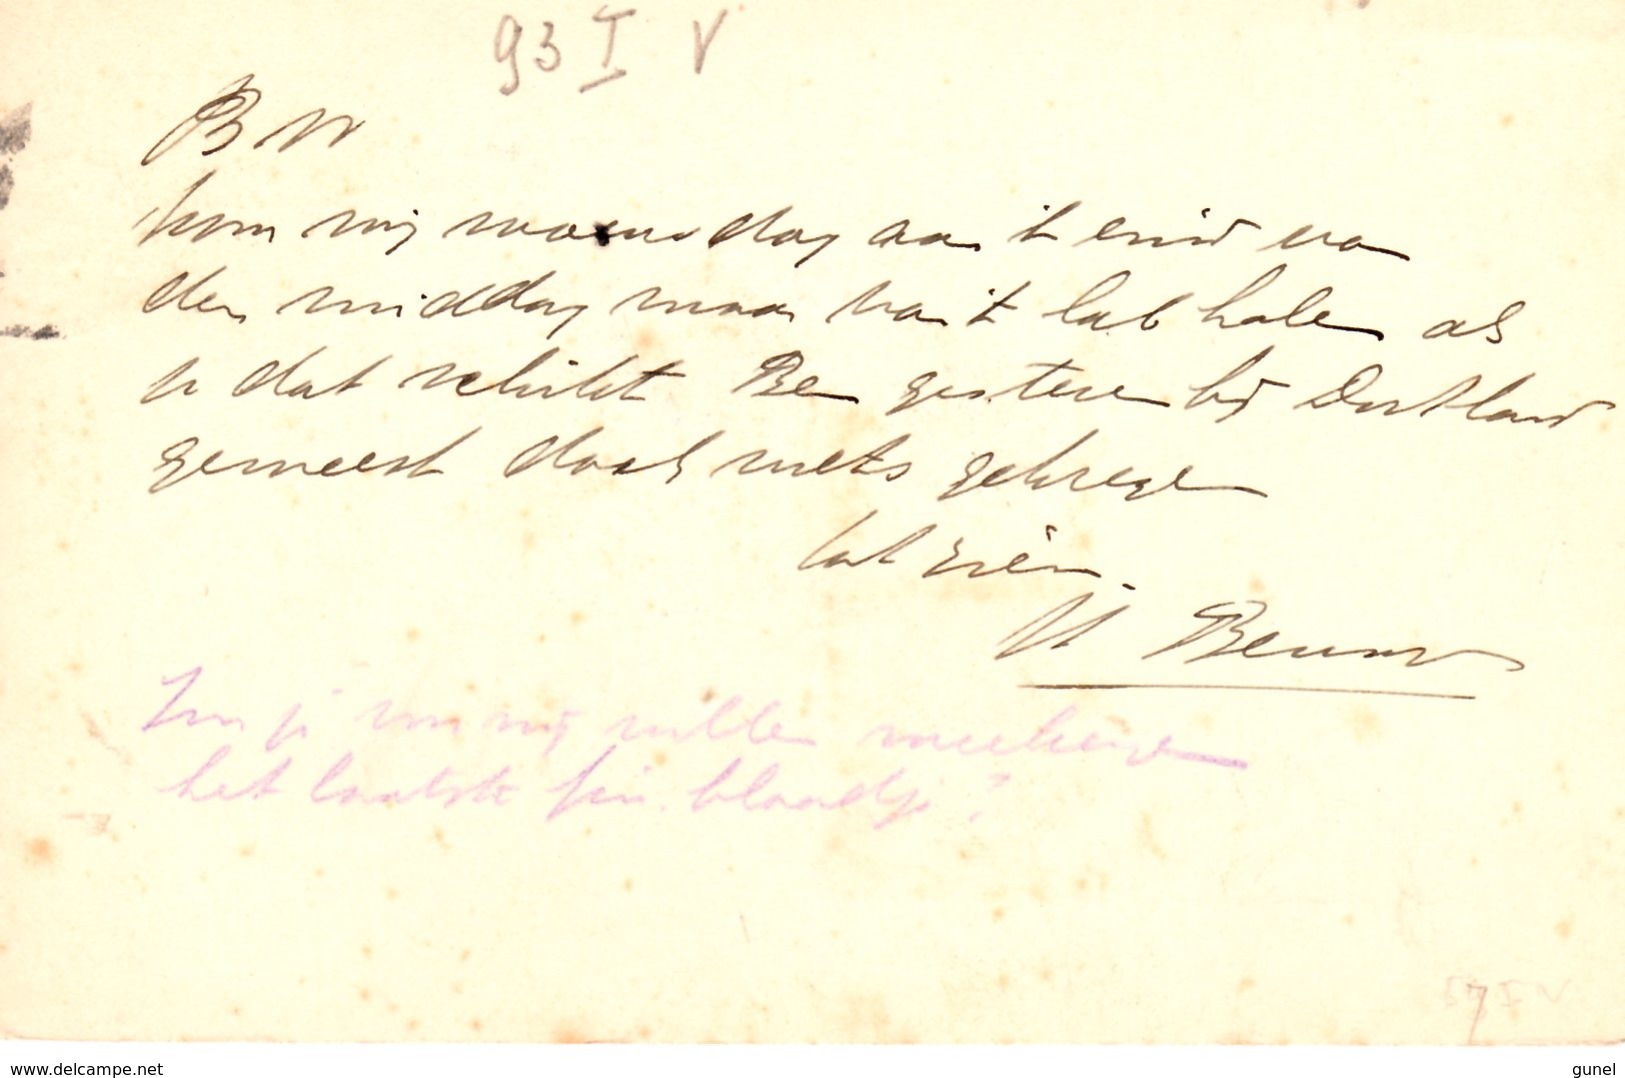 93 I V
BW
kom mij woensdag aan 't eind van
den middag maar van 't lab halen als
je dat schikt Ben gisteren bij
geweest doch niets gekregen
tot ziens.
Zou je voor mij willen meebrengen
het laatste fin. blaadje?
57 I V
www.delcampe.net
gunel